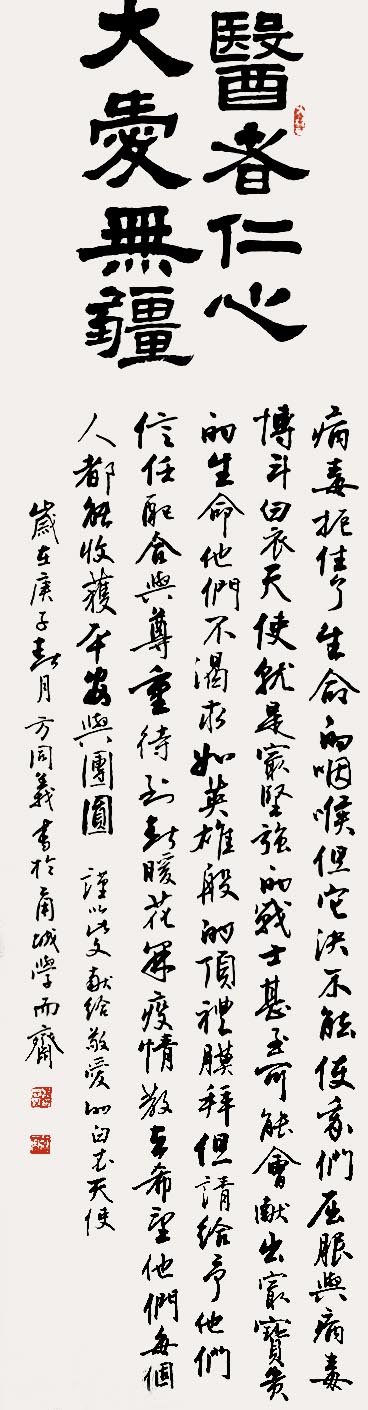 醫者仁心
大愛無疆
病毒扼住了生命的咽喉但它決不能使我們屈服與病毒
搏斗白衣天使就是最堅強的戰士甚至可能會獻出最寶貴
的生命他們不渴求如英雄般的頂禮膜拜但請給予他們
信任配合與尊重待到春暖花開疫情散去希望他們每個
人都能收獲平安與團圓 謹以此文獻給敬愛的白衣天使
歲在庚子春月方同義書於甬城學而齋